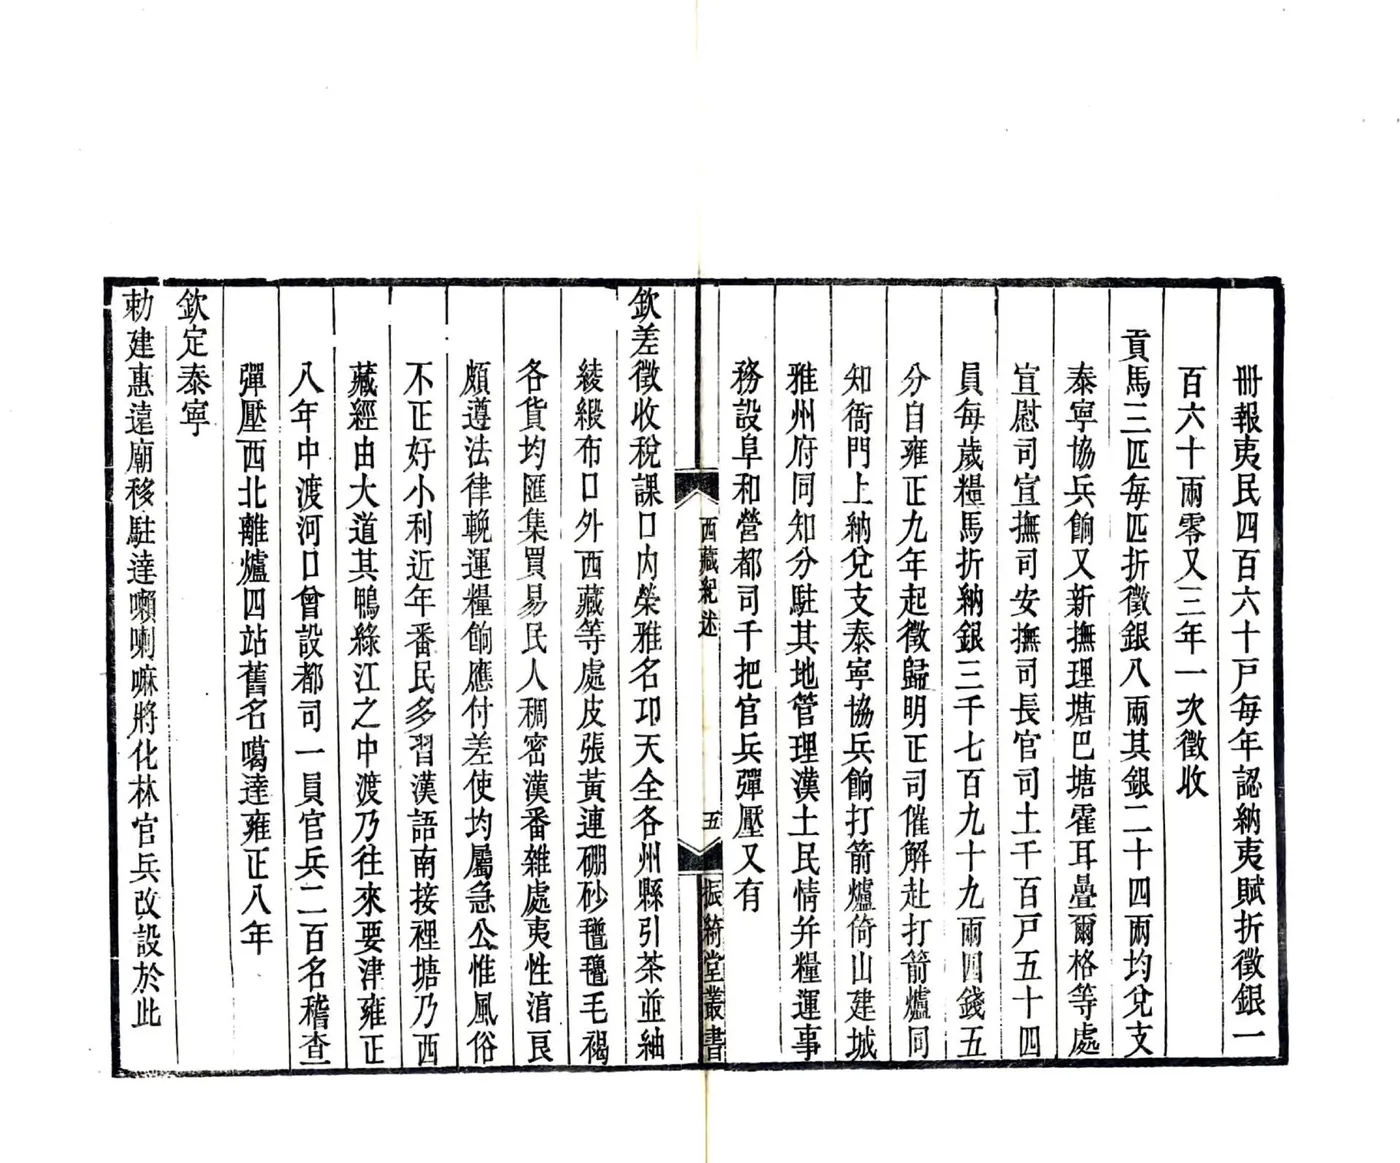 冊報夷民四百六十戸每年認納夷賦折徵銀一
百六十兩零又三年一次徵收
貢馬三匹每匹折徵銀八兩其銀二十四兩均兌支
泰寧協兵餉又新撫理塘巴塘霍耳疊爾格等處
宣慰司宣撫司安撫司長官司土千百戸五十四
員每歲糧馬折納銀三千七百九十九兩四錢五
分自雍正九年起徵歸明正司催解赴打箭爐同
知衙門上納兌支泰寧協兵餉打箭爐倚山建城
雅州府同知分駐其地管理漢土民情幷糧運事
務設阜和營都司千把官兵彈壓又有
西藏紀述
五
振綺堂叢書
欽差徵收稅課口内榮雅名邛天全各州縣引茶並紬
綾緞布口外西藏等處皮張黃連硼砂氆氌毛褐
各貨均匯集買易民人稠密漢番雜處夷性淳良
頗遵法律輓運糧餉應付差使均屬急公惟風俗
不正好小利近年番民多習漢語南接裡塘乃西
藏經由大道其鴨綠江之中渡乃往來要津雍正
八年中渡河口曾設都司一員官兵二百名稽查
彈壓西北離爐四站舊名噶達雍正八年
欽定泰寧
勅建惠遠廟移駐達嚩喇嘛將化林官兵改設於此